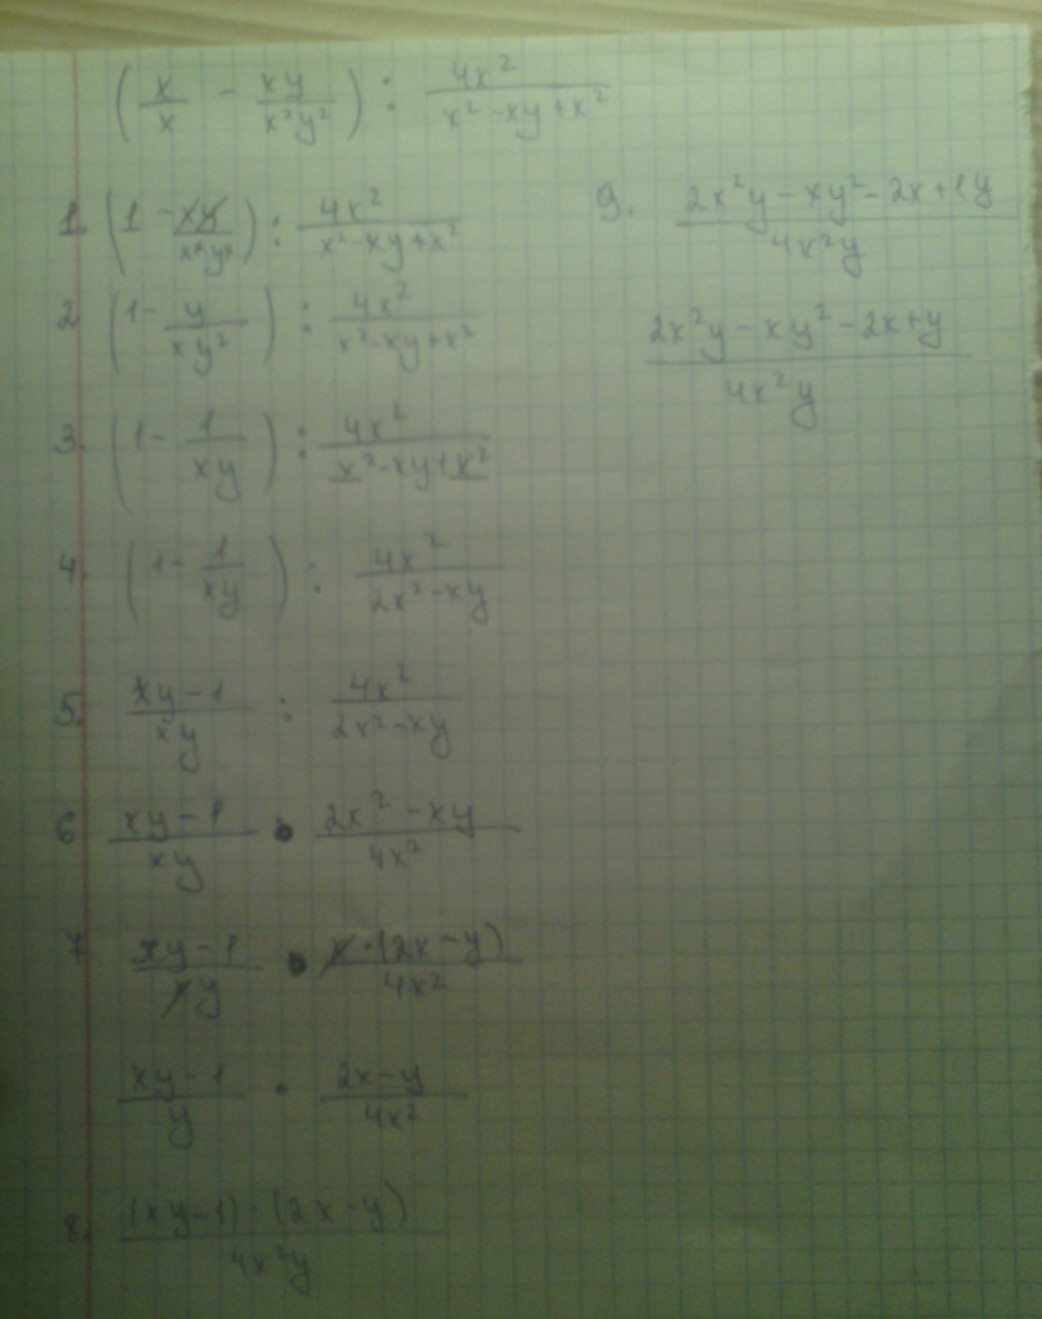 (x/x - xy/x²y²) : 4x²/(x² - xy + x²)
1. (1 - xy/x²y²) : 4x²/(x² - xy + x²)
2 (1 - y/xy²) : 4x²/(x² - xy + x²)
3. (1 - 1/xy) : 4x²/(x² - xy + x²)
4. (1 - 1/xy) : 4x²/(2x² - xy)
5. (xy - 1)/xy : 4x²/(2x² - xy)
6 (xy - 1)/xy • (2x² - xy)/4x²
7 (xy - 1)/xy • x·(2x - y)/4x²
(xy - 1)/y · (2x - y)/4x²
8. (xy - 1) · (2x - y)/4x²y
9. (2x²y - xy² - 2x + 1y)/4x²y
(2x²y - xy² - 2x + y)/4x²y